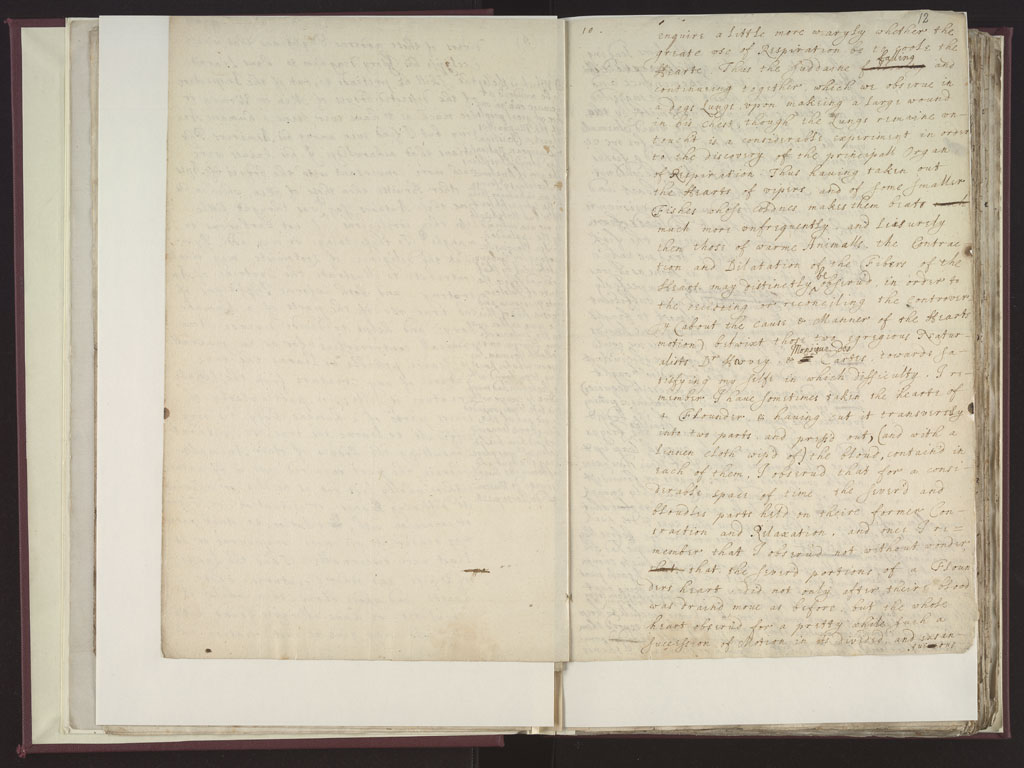 12
10.
enquire a little more waryly whether the
greate use of Respiration be to coole the
Hearte. Thus the suddaine falling and
continuing together, which we obserue in
a dogs Lungs upon makeing a large wound
in his chest, though the Lungs remaine un-
toucht is a considerable experiment in order
to the discovery of the principall Organ
of Respiration. Thus haveing taken out
the Hearts of vipers, and of some smaller
Fishes whose Coldnes makes them beate
much more unfrequently, and Leasurely
then those of warme Animalls, the Contrac
tion and Dilatation of the Fibers of the
Heart may distinctly be obseru'd, in order to
the deciding or reconcileing the Controver
sy (about the cause & Manner of the Hearts
motion) betwixt those two egregious Natur-
alists Dr Harvey, & Monsieur des Cartes, towards sa-
tisfying my selfe in which difficulty. I re-
member I have sometimes taken the hearte of
a Flounder & having cut it transversly
into two parts, and press'd out, (and with a
linnen cloth wip'd of) the bloud, containd in
each of them, I obserud that for a consi-
derable space of time the sever'd and
bloudles parts held on theire former Con-
traction and Relaxation, and once I re=
member that I obseru'd not without wonder
that the severd portions of a Floun
ders heart did not only after their blood
was draind move as before, but the whole
heart obserud for a pretty while such a
succession of Motion in its divided, and exsan-